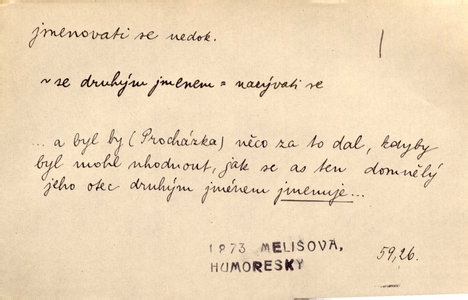 jmenovati se nedok.
~ se druhým jmenem = nazývati se
... a byl by (Procházka) něco za to dal, kdyby
byl mohl uhodnout, jak se as ten domnělý
jeho otec druhým jménem jmenuje...
1873 MELIŠOVÁ,
HUMORESKY
59,26.